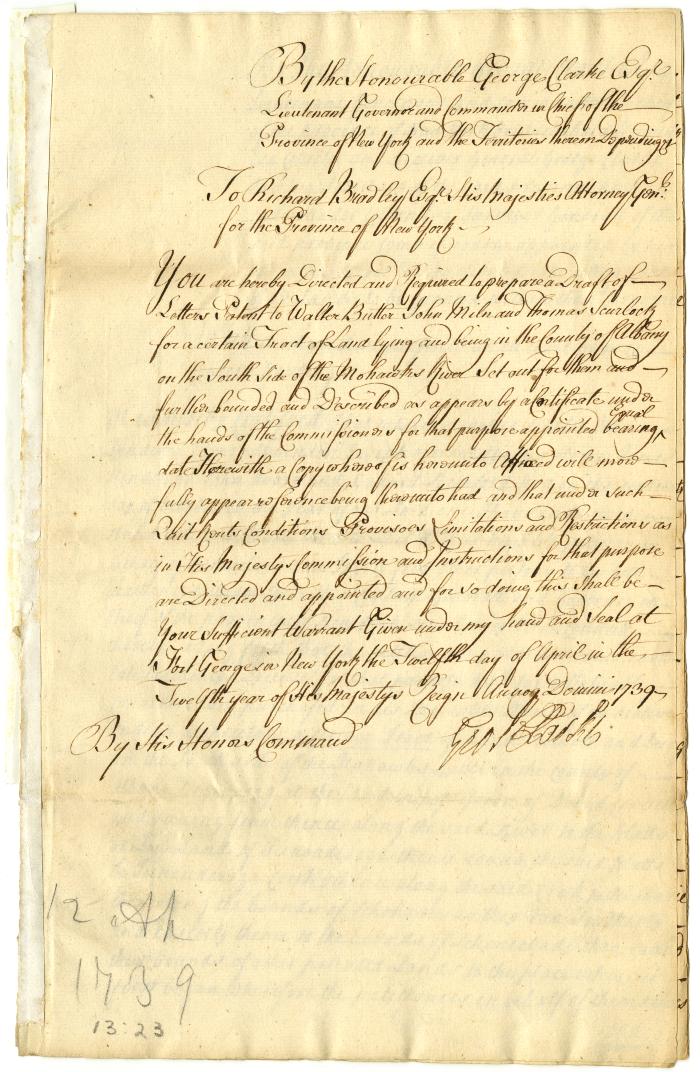 By the Honourable George Clarke Esqr.
Lieutenant Governor and Commander in Chief of the
Province of New York and the Territories thereon Depending &
To Richard Bradley Esqr. His Majesties Attorney Genl.
for the Province of New York
You are hereby Directed and Required to prepare a Draft of
Letters Patent to Walter Butler John Miln and Thomas Scurlock
for a certain Tract of Land lying and being in the County of Albany
on the South side of the Mohawks River Set out for them and
further bounded and Described as appears by a Certificate under
the hands of the Commissioners for that purpose appointed bearing Equal
date Herewith a Copy whereof is hereunto Affixed will more
fully appear reference being thereunto had and that under such
Quit Rents Conditions Provisoes Limitations and Restrictions as
in His Majestys Commission and Instructions for that purpose
are Directed and appointed and for so doing this shall be
Your Sufficient Warrant Given under my hand and Seal at
Fort George in New York the Twelfth day of April in the
Twelfth year of His Majestys Reign Annoq Domini 1739
By His Honors Command
Geo Clarke
12 Ap
1739
13:23